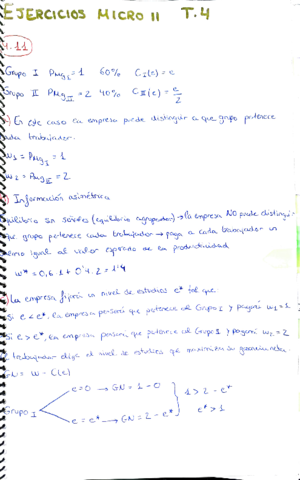 EJERCICIOS MICRO II T.4
4.11
Grupo I PMg I = 1 60% C I (e) = e
Grupo II PMg II = 2 40% C II (e) = e/2
) En este caso la empresa puede distinguir a que grupo pertenece
cada trabajador.
w1 = PMg I = 1
w2 = PMg II = 2
) Información asimétrica
quilibrio sin señales (equilibrio agrupador) → la empresa NO puede distingui
que grupo pertenece cada trabajador → paga a cada trabajador un
igual al valor esperado de su productividad
w* = 0,6·1 + 0'4·2 = 1'4
) La empresa fijará un nivel de estudios e* tal que
Si e < e*, la empresa pensará que pertenece al Grupo I y pagará w1 = 1
Si e > e*, la empresa pensará que pertenece al Grupo I y pagará w2 = 2
trabajador elige el nivel de estudios que maximiza su
GN = W - C(e)
e=0 → GN = 1-0
1 > 2 - e*
Grupo I
e* > 1
e = e* → GN = 2 - e*